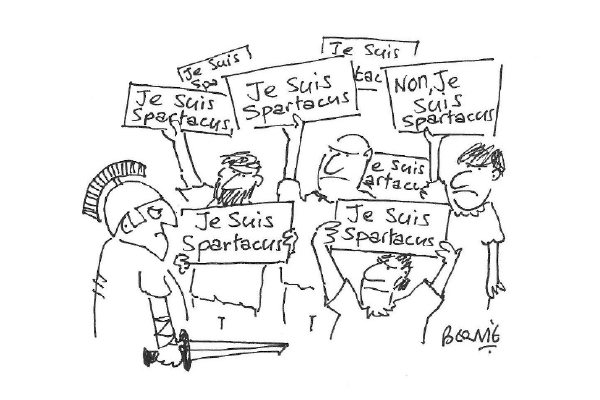 Je Suis
Je Suis
Je Suis
Spartacus
Je Suis
Spartacus
Non, Je
Suis
Spartacus
Je Suis
Spartacus
Je Suis
Spartacus
BERNIE